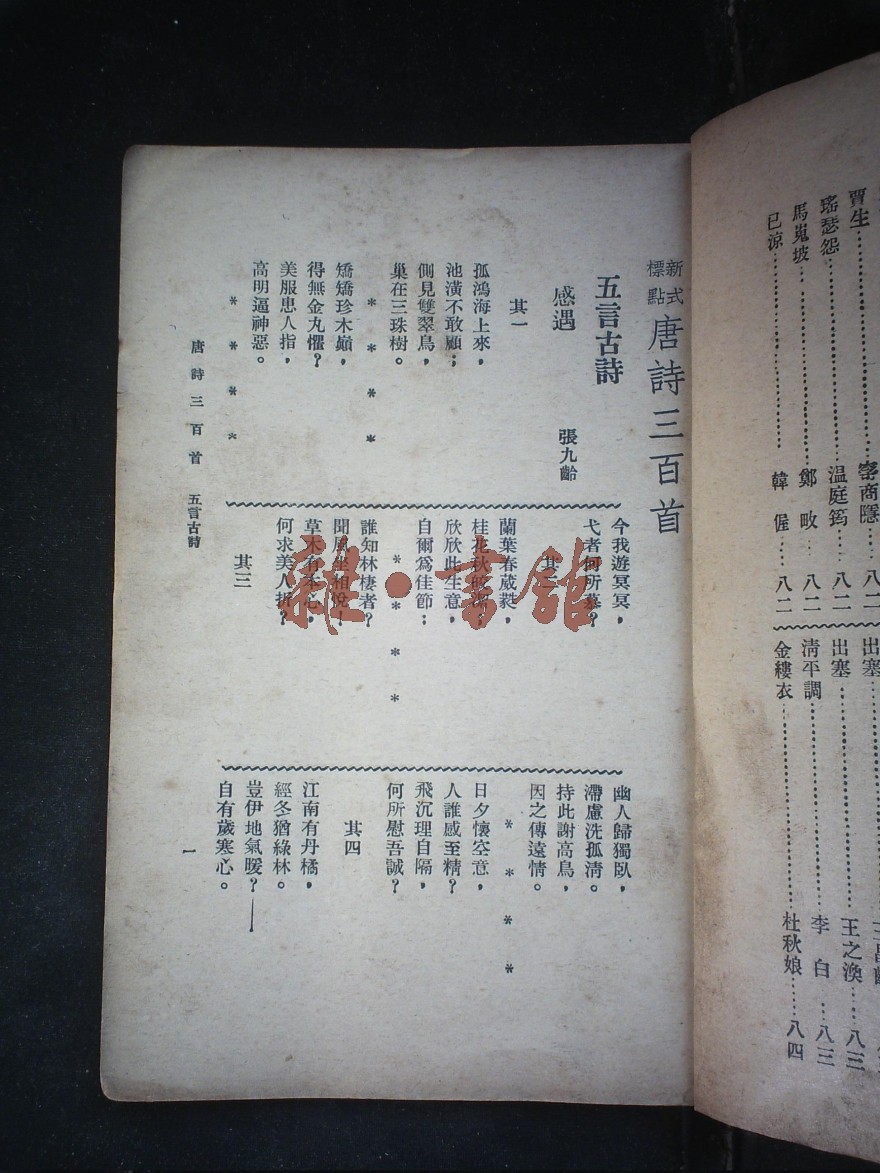 賈生……………李商隱 八二
瑤瑟怨……………温庭筠 八二
馬嵬坡……………鄭畋 八二
已涼……………韓偓 八二
出塞……………王昌齡
出塞……………王之渙……八三
清平調……………李白……八三
金縷衣……………杜秋娘……八四
新式標點 唐詩三百首
五言古詩
感遇 張九齡
其一
孤鴻海上來，
池潢不敢顧；
側見雙翠鳥，
巢在三珠樹。
* * * *
矯矯珍木巔，
得無金丸懼？
美服患人指，
高明逼神惡。
* * * *
今我遊冥冥，
弋者何所慕？
其二
蘭葉春葳蕤，
桂花秋皎潔；
欣欣此生意，
自爾爲佳節；
* * * *
誰知林棲者？
聞風坐相悅！
草木有本心，
何求美人折？
其三
幽人歸獨臥，
滯慮洗孤清。
持此謝高鳥，
因之傳遠情。
* * * *
日夕懷空意，
人誰感至精？
飛沉理自隔，
何所慰吾誠？
其四
江南有丹橘，
經冬猶綠林。
豈伊地氣暖？——
自有歲寒心。
唐詩三百首 五言古詩
一
雜·書館